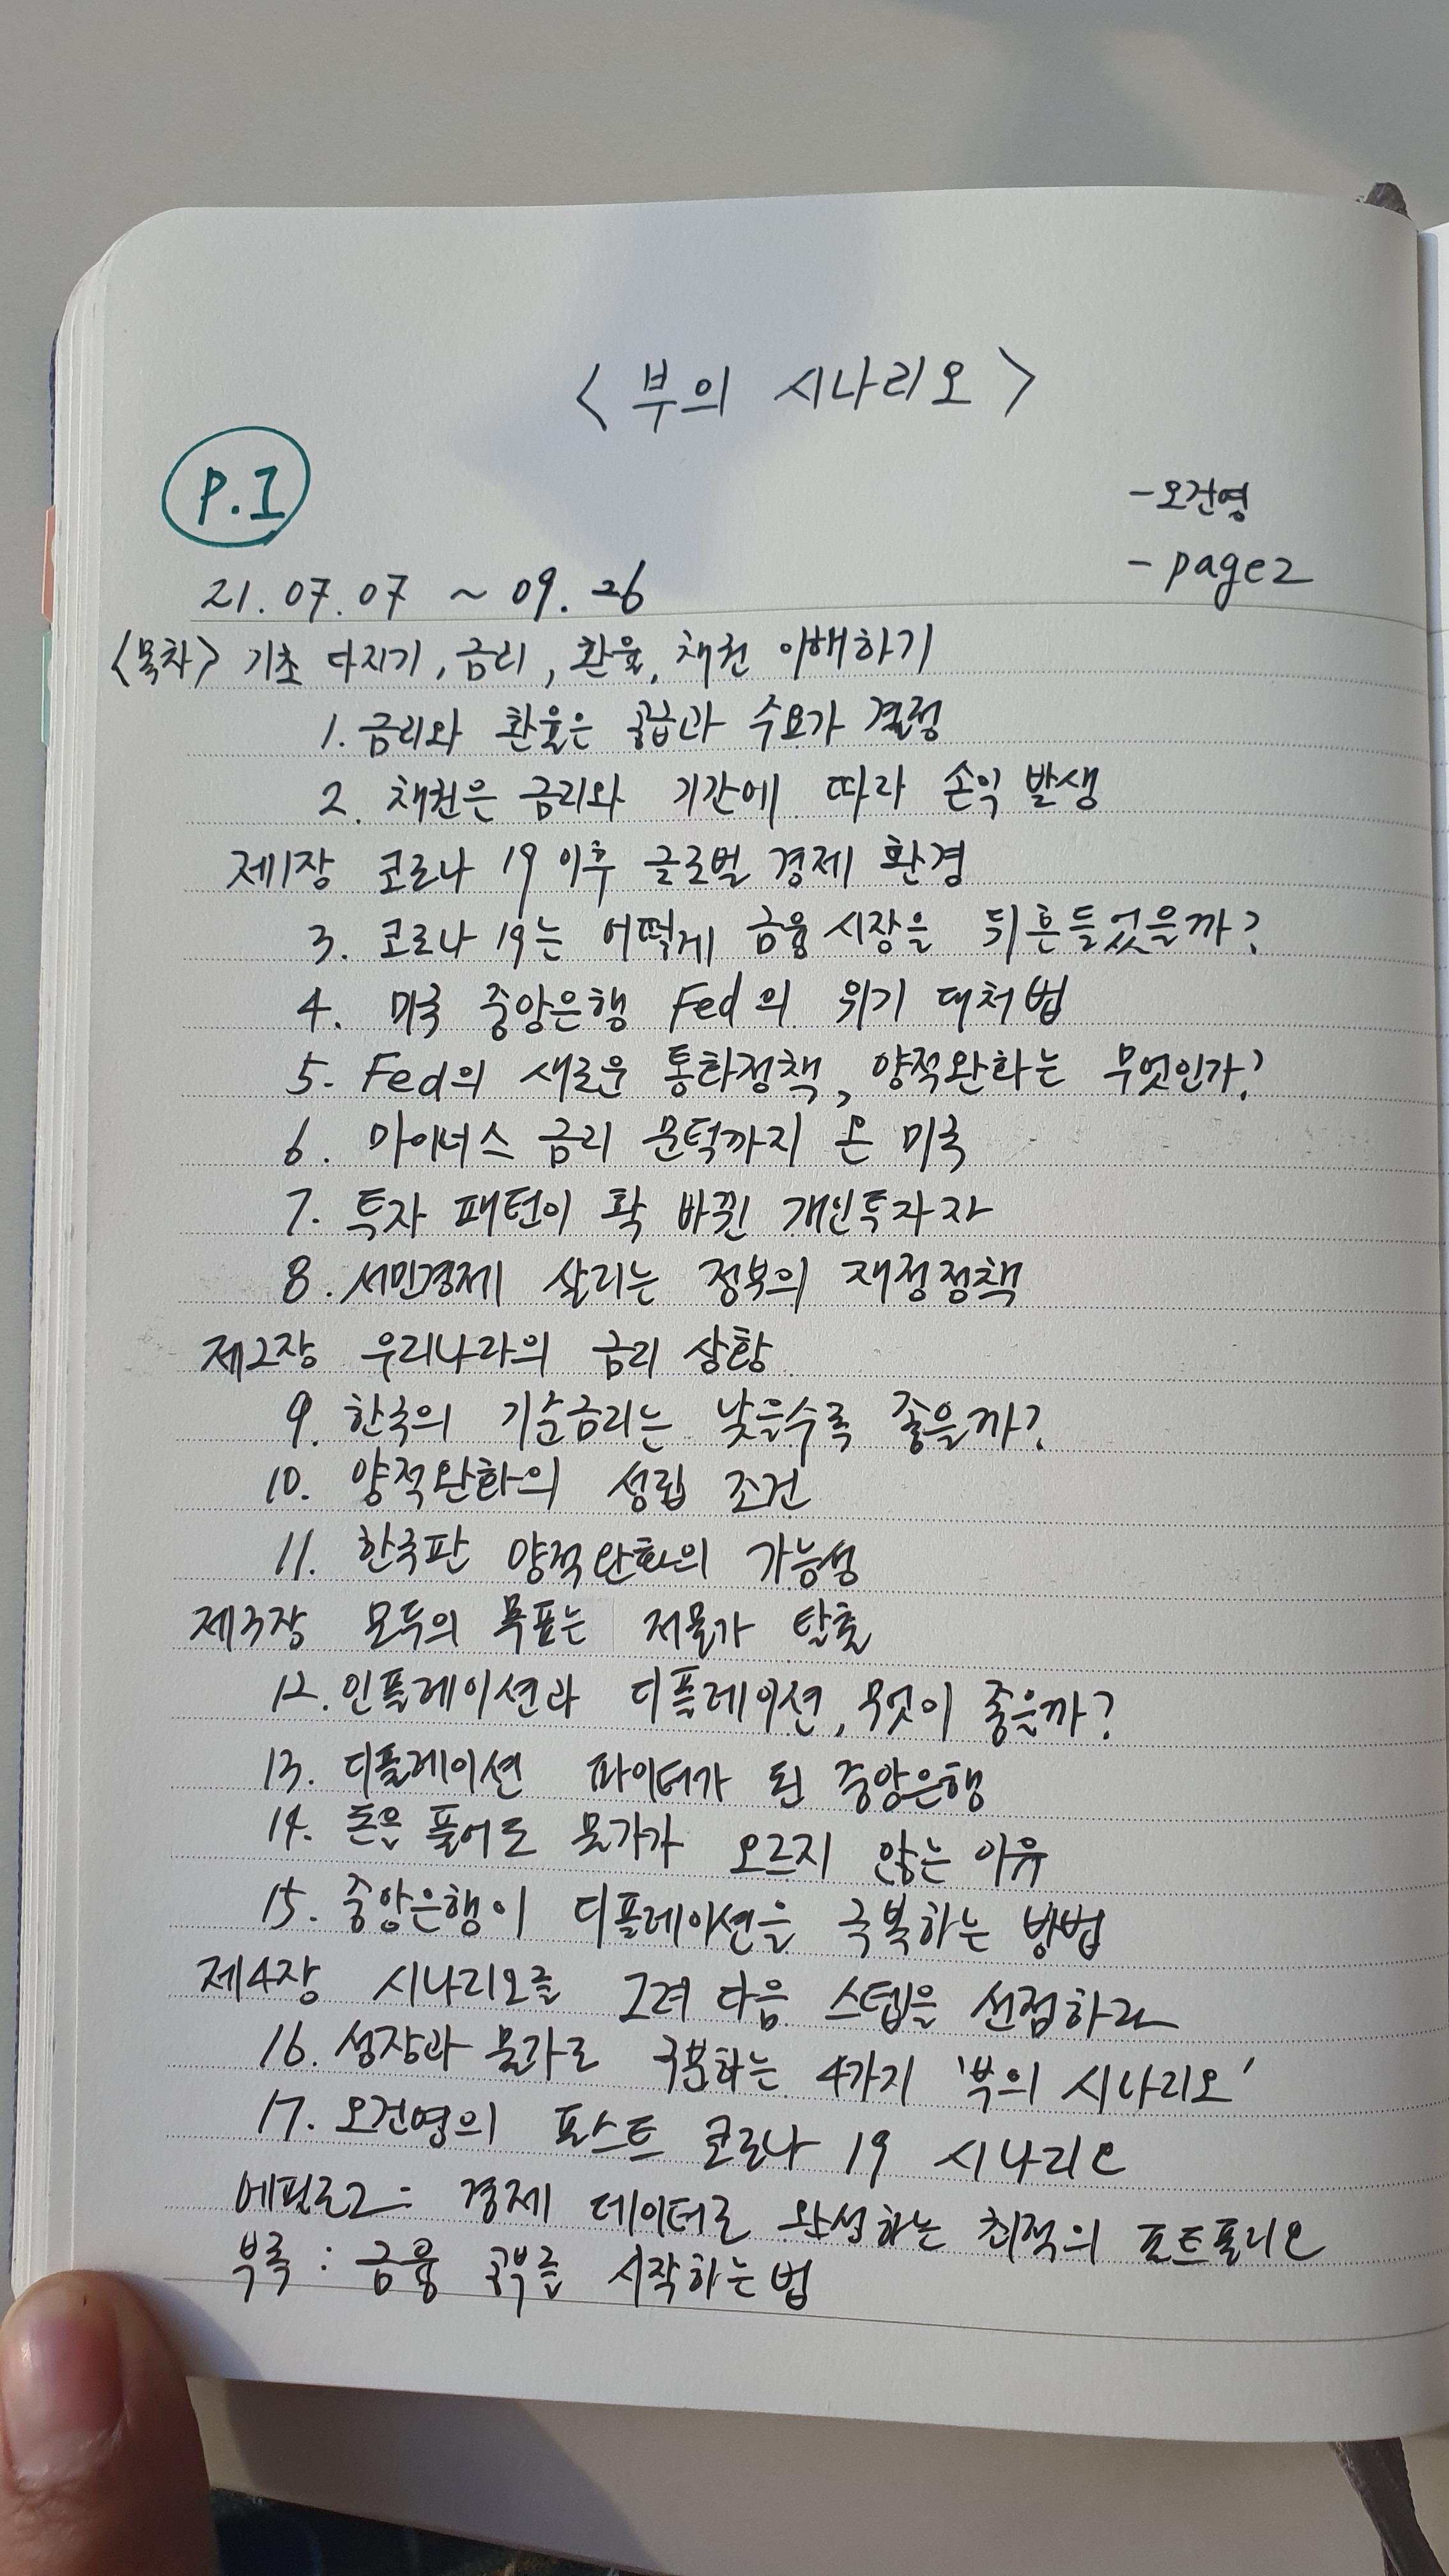 <부의 시나리오>
P.1
-오건영
- page2
21.07.07 ~ 09.26
<목차> 기초 다지기, 금리, 환율, 채권 이해하기
1. 금리와 환율은 공급과 수요가 결정
2. 채권은 금리와 기간에 따라 손익 발생
제1장 코로나 19 이후 글로벌 경제 환경
3. 코로나 19는 어떻게 금융시장을 뒤흔들었을까?
4. 미국 중앙은행 Fed의 위기 대처법
5. Fed의 새로운 통화정책, 양적완화는 무엇인가?
6. 마이너스 금리 문턱까지 온 미국
7. 투자 패턴이 확 바뀐 개인투자자
8. 서민경제 살리는 정부의 재정정책
제2장 우리나라의 금리 상황
9. 한국의 기준금리는 낮을수록 좋을까?
10. 양적완화의 성립 조건
11. 한국판 양적완화의 가능성
제3장 모두의 목표는 저물가 탈출
12. 인플레이션과 디플레이션, 무엇이 좋을까?
13. 디플레이션 파이터가 된 중앙은행
14. 돈을 풀어도 물가가 오르지 않는 이유
15. 중앙은행이 디플레이션을 극복하는 방법
제4장 시나리오를 그려 다음 스텝을 선점하라
16. 성장과 물가로 구분하는 4가지 '부의 시나리오'
17. 오건영의 포스트 코로나 19 시나리오
에필로그 : 경제 데이터로 완성하는 최적의 포트폴리오
부록 : 금융 공부를 시작하는 법